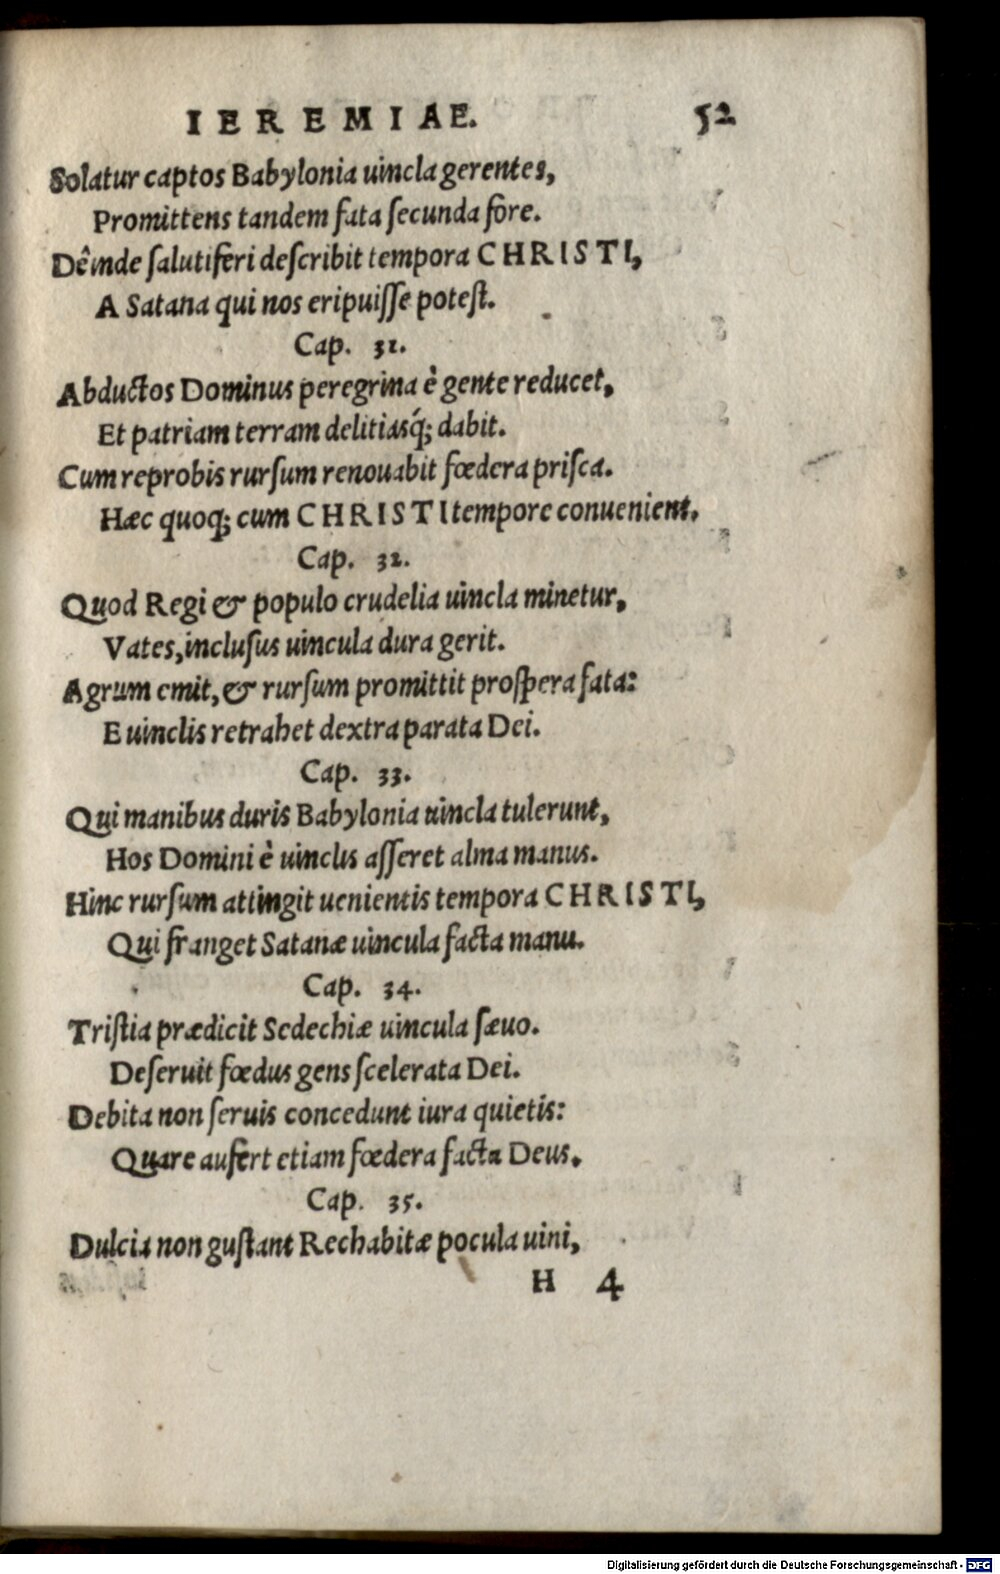 IEREMIAE. 52
Solatur captos Babylonia uincla gerentes,
Promittens tandem fata ſecunda fore.
Dêinde ſalutiferi deſcribit tempora CHRISTI,
A Satana qui nos eripuiſſe poteſt.
Cap. 31.
Abductos Dominus peregrina è gente reducet,
Et patriam terram delitiasq́; dabit.
Cum reprobis rurſum renouabit fœdera priſca.
Hæc quoq; cum CHRISTI tempore conuenient.
Cap. 32.
Quod Regi & populo crudelia uincla minetur,
Vates, incluſus uincula dura gerit.
Agrum emit, & rurſum promittit proſpera fata:
E uinclis retrahet dextra parata Dei.
Cap. 33.
Qui manibus duris Babylonia uincla tulerunt,
Hos Domini è uinclis aſſeret alma manus.
Hinc rurſum attingit uenientis tempora CHRISTI,
Qui franget Satanæ uincula facta manu.
Cap. 34.
Triſtia prædicit Sedechiæ uincula ſæuo.
Deſeruit fœdus gens ſcelerata Dei.
Debita non ſeruis concedunt iura quietis:
Quare aufert etiam fœdera facta Deus.
Cap. 35.
Dulcia non guſtant Rechabitæ pocula uini,
H 4
Digitalisierung gefördert durch die Deutsche Forschungsgemeinschaft - DFG